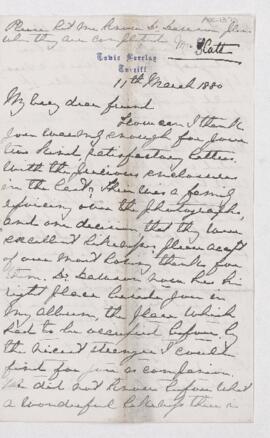 Please let me know Dr Dawson
when they are completed Mr Slate
Towie Barclay
Turriff
11th March 1880
My very dear friend
How can I thank
you warmly enough for your
two kind, satisfactory letters
with the precious enclosures
in the last. There was a family
rejoicing over the photographs,
and one decision, that they were
excellent likenesses. Please accept
of our most loving thanks for
them. Dr Dawson now has his
right place beside you in
my album, the place which
had to be occupied before by
the nicest stranger I could
find for you as companion.
We did not know before what
a wonderful likeness there is